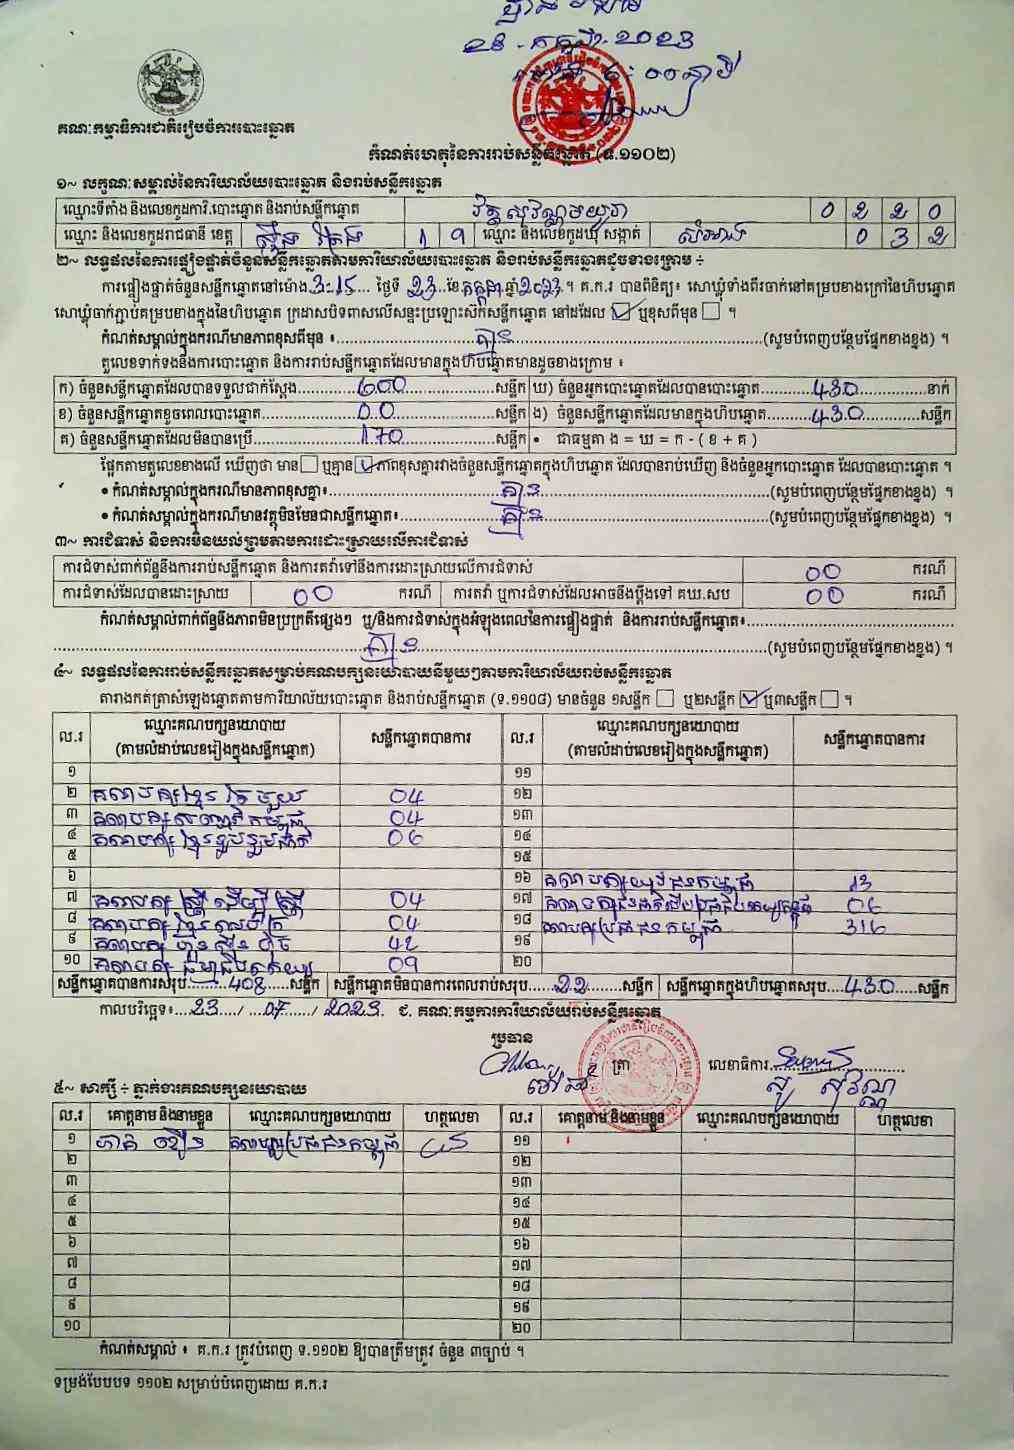 ២៥ . កក្កដា. ២០២៣
គណៈកម្មាធិការជាតិរៀបចំការបោះឆ្នោត
កំណត់ហេតុនៃការរាប់សន្លឹកឆ្នោត (ទ.១១០២)
១~ លក្ខណៈសម្គាល់នៃការិយាល័យបោះឆ្នោត និងរាប់សន្លឹកឆ្នោត
ឈ្មោះទីតាំង និងលេខកូដការិ.បោះឆ្នោត និងរាប់សន្លឹកឆ្នោត វត្តសុវណ្ណមយូរា 0 2 2 0
ឈ្មោះ និងលេខកូដរាជធានី ខេត្ត ស្ទឹង ត្រែង 1 9 ឈ្មោះ និងលេខកូដឃុំ សង្កាត់ សំអាង 0 3 2
២~ លទ្ធផលនៃការផ្ទៀងផ្ទាត់ចំនួនសន្លឹកឆ្នោតតាមការិយាល័យបោះឆ្នោត និងរាប់សន្លឹកឆ្នោតដូចខាងក្រោម ÷
ការផ្ទៀងផ្ទាត់ចំនួនសន្លឹកឆ្នោតនៅម៉ោង 3:15 ថ្ងៃទី 23 ខែ កក្កដា ឆ្នាំ 2023 ។ គ.ក.រ បានពិនិត្យ៖ សោឃ្លុំទាំងពីរចាក់នៅគម្របខាងក្រៅនៃហិបឆ្នោត
សោឃ្លុំចាក់ភ្ជាប់គម្របខាងក្នុងនៃហិបឆ្នោត ក្រដាសបិទពាសលើសន្ទះប្រឡោះស៊កសន្លឹកឆ្នោត នៅដដែល ✓ ឬខុសពីមុន ។
កំណត់សម្គាល់ក្នុងករណីមានភាពខុសពីមុន ៖ គ្មាន (សូមបំពេញបន្ថែមផ្នែកខាងខ្នង) ។
តួលេខទាក់ទងនឹងការបោះឆ្នោត និងការរាប់សន្លឹកឆ្នោតដែលមានក្នុងហិបឆ្នោតមានដូចខាងក្រោម ៖
ក) ចំនួនសន្លឹកឆ្នោតដែលបានទទួលជាក់ស្តែង 600 សន្លឹក ឃ) ចំនួនអ្នកបោះឆ្នោតដែលបានបោះឆ្នោត 430 នាក់
ខ) ចំនួនសន្លឹកឆ្នោតខូចពេលបោះឆ្នោត 00 សន្លឹក ង) ចំនួនសន្លឹកឆ្នោតដែលមានក្នុងហិបឆ្នោត 430 សន្លឹក
គ) ចំនួនសន្លឹកឆ្នោតដែលមិនបានប្រើ 170 សន្លឹក • ជាធម្មតា ង = ឃ = ក - ( ខ + គ )
ផ្អែកតាមតួលេខខាងលើ ឃើញថា មាន ឬគ្មាន ✓ ភាពខុសគ្នារវាងចំនួនសន្លឹកឆ្នោតក្នុងហិបឆ្នោត ដែលបានរាប់ឃើញ និងចំនួនអ្នកបោះឆ្នោត ដែលបានបោះឆ្នោត ។
• កំណត់សម្គាល់ក្នុងករណីមានភាពខុសគ្នា៖ គ្មាន (សូមបំពេញបន្ថែមផ្នែកខាងខ្នង) ។
• កំណត់សម្គាល់ក្នុងករណីមានវត្ថុមិនមែនជាសន្លឹកឆ្នោត៖ គ្មាន (សូមបំពេញបន្ថែមផ្នែកខាងខ្នង) ។
៣~ ការជំទាស់ និងការមិនយល់ព្រមតាមការដោះស្រាយលើការជំទាស់
ការជំទាស់ពាក់ព័ន្ធនឹងការរាប់សន្លឹកឆ្នោត និងការតវ៉ាទៅនឹងការដោះស្រាយលើការជំទាស់ 00 ករណី
ការជំទាស់ដែលបានដោះស្រាយ 00 ករណី ការតវ៉ា ឬការជំទាស់ដែលអាចនឹងប្តឹងទៅ គឃ.សប 00 ករណី
កំណត់សម្គាល់ពាក់ព័ន្ធនឹងភាពមិនប្រក្រតីផ្សេងៗ ឬ/និងការជំទាស់ក្នុងអំឡុងពេលនៃការផ្ទៀងផ្ទាត់ និងការរាប់សន្លឹកឆ្នោត៖
គ្មាន (សូមបំពេញបន្ថែមផ្នែកខាងខ្នង) ។
៤~ លទ្ធផលនៃការរាប់សន្លឹកឆ្នោតសម្រាប់គណបក្សនយោបាយនីមួយៗតាមការិយាល័យរាប់សន្លឹកឆ្នោត
តារាងកត់ត្រាសំឡេងឆ្នោតតាមការិយាល័យបោះឆ្នោត និងរាប់សន្លឹកឆ្នោត (ទ.១១០៨) មានចំនួន ១សន្លឹក ឬ២សន្លឹក ✓ ឬ៣សន្លឹក ។
ល.រ ឈ្មោះគណបក្សនយោបាយ (តាមលំដាប់លេខរៀងក្នុងសន្លឹកឆ្នោត) សន្លឹកឆ្នោតបានការ ល.រ ឈ្មោះគណបក្សនយោបាយ (តាមលំដាប់លេខរៀងក្នុងសន្លឹកឆ្នោត) សន្លឹកឆ្នោតបានការ
១ ១១
២ គណបក្សខ្មែរតែមួយ 04 ១២
៣ គណបក្សសញ្ជាតិកម្ពុជា 04 ១៣
៤ គណបក្សខ្មែររួបរួមជាតិ 06 ១៤
៥ ១៥
៦ ១៦ គណបក្សយុវជនកម្ពុជា 13
៧ គណបក្ស ស្ត្រី ដើម្បី ស្ត្រី 04 ១៧ 06
៨ គណបក្ស 04 ១៨ គណបក្សប្រជាជនកម្ពុជា 316
៩ គណបក្ស ហ៊្វុនស៊ិនប៉ិច 42 ១៩
១០ គណបក្ស ធម្មាធិបតេយ្យ 09 ២០
សន្លឹកឆ្នោតបានការសរុប 408 សន្លឹក សន្លឹកឆ្នោតមិនបានការពេលរាប់សរុប 22 សន្លឹក សន្លឹកឆ្នោតក្នុងហិបឆ្នោតសរុប 430 សន្លឹក
កាលបរិច្ឆេទ៖ 23 / 07 / 2023. ជ. គណៈកម្មការការិយាល័យរាប់សន្លឹកឆ្នោត
ប្រធាន
ត្រា លេខាធិការ
ស៊ូ សុវណ្ណ
៥~ សាក្សី ÷ ភ្នាក់ងារគណបក្សនយោបាយ
ល.រ គោត្តនាម និងនាមខ្លួន ឈ្មោះគណបក្សនយោបាយ ហត្ថលេខា ល.រ គោត្តនាម និងនាមខ្លួន ឈ្មោះគណបក្សនយោបាយ ហត្ថលេខា
១ គណបក្សប្រជាជនកម្ពុជា ១១
២ ១២
៣ ១៣
៤ ១៤
៥ ១៥
៦ ១៦
៧ ១៧
៨ ១៨
៩ ១៩
១០ ២០
កំណត់សម្គាល់ ៖ គ.ក.រ ត្រូវបំពេញ ទ.១១០២ ឱ្យបានត្រឹមត្រូវ ចំនួន ៣ច្បាប់ ។
ទម្រង់បែបបទ ១១០២ សម្រាប់បំពេញដោយ គ.ក.រ